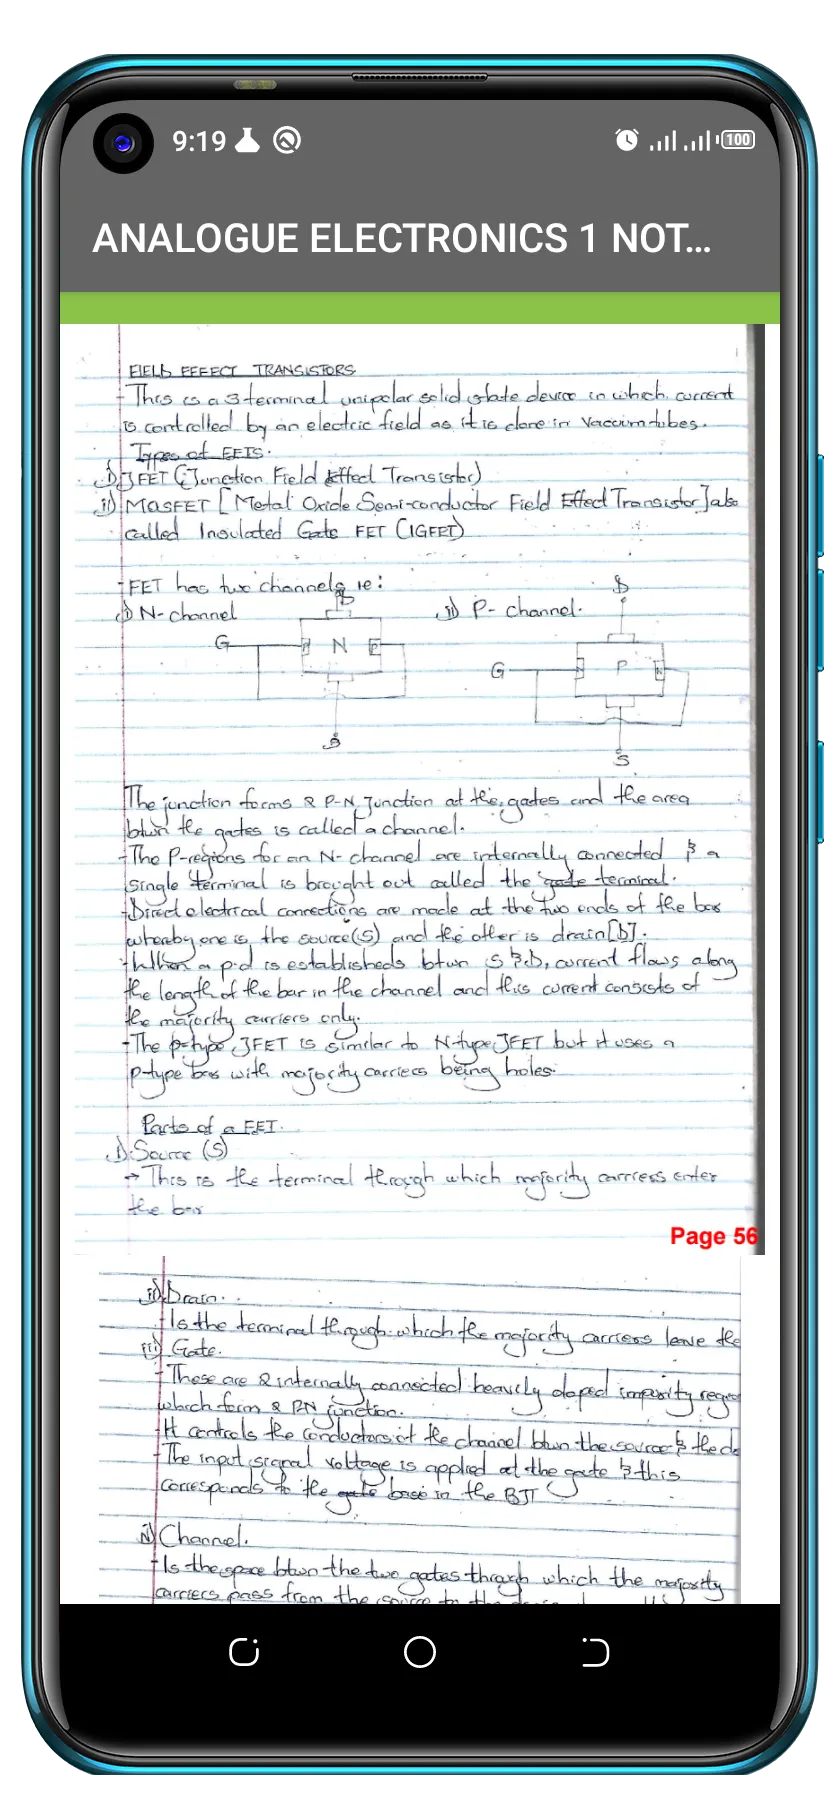 9:19
100
ANALOGUE ELECTRONICS 1 NOT...
FIELD EFFECT TRANSISTORS
- This is a 3 terminal unipolar solid state device in which current
is controlled by an electric field as it is done in vaccum tubes.
Types of FETS.
i) JFET (Junction Field Effect Transistor)
ii) MOSFET [Metal Oxide Semi-conductor Field Effect Transistor] also
called Insulated Gate FET (IGFET)
- FET has two channels ie:
i) N-channel
ii) P-channel.
D
D
G
P
N
P
G
N
P
N
S
S
The junction forms 2 P-N Junction at the gates and the area
btwn the gates is called a channel.
- The P-regions for an N-channel are internally connected & a
single terminal is brought out called the gate terminal.
- Direct electrical connections are made at the two ends of the bar
whereby one is the source(S) and the other is drain[D].
- When a p.d is establisheds btwn S & D, current flows along
the length of the bar in the channel and this current consists of
the majority carriers only.
- The p-type JFET is similar to N-type JFET but it uses a
p-type bar with majority carriers being holes.
Parts of a FET.
i) Source (S)
→ This is the terminal through which majority carriers enter
the bar
Page 56
ii) Drain.
- Is the terminal through which the majority carriers leave the
iii) Gate.
- These are 2 internally connected heavily doped impurity
which form 2 PN junction.
- It controls the of the channel btwn the source & the
- The input signal voltage is applied at the gate & this
corresponds to the base in the BJT
iv) Channel.
- Is the space btwn the two gates through which the majority
carriers pass from the source to the